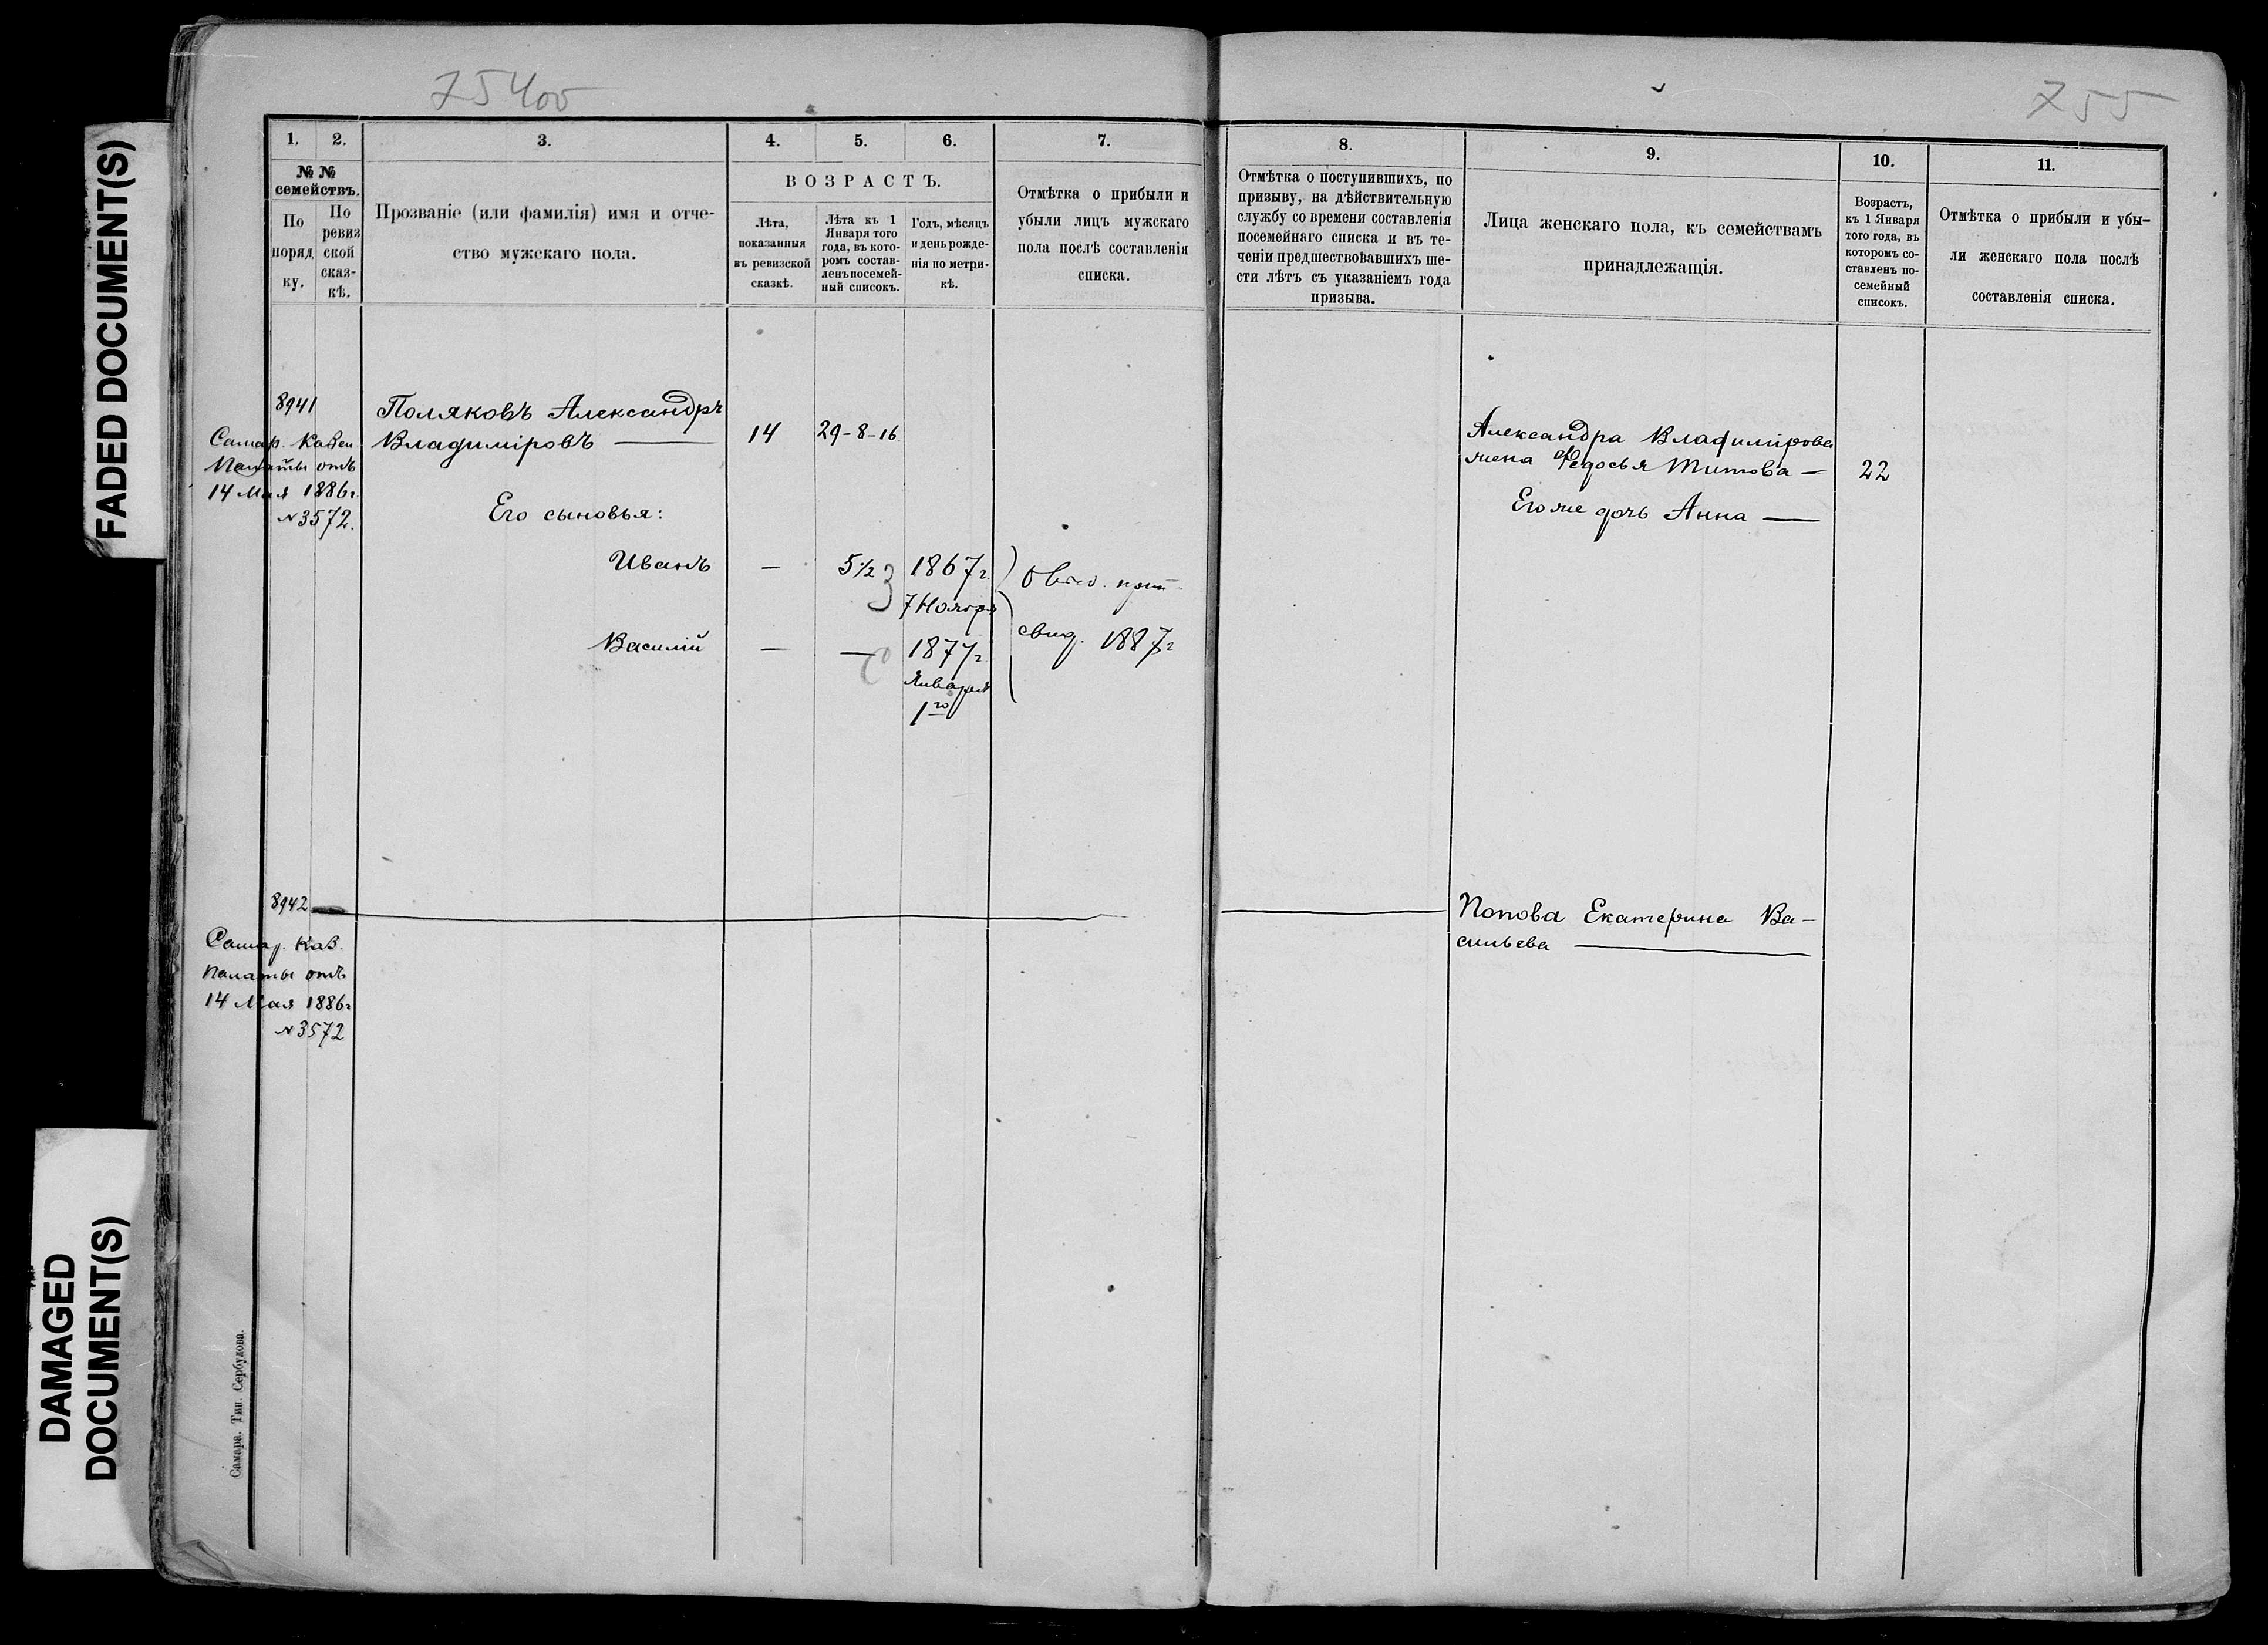 FADED DOCUMENT(S)
DAMAGED
DOCUMENT(S)
754об
755
1.
2.
3.
4.
5.
6.
7.
8.
9.
10.
11.
№ №
семействъ.
По
поряд
ку.
По
ревиз
ской
сказ-
кѣ.
Прозваніе (или фамилія) имя и отче-
ство мужскаго пола.
ВОЗРАСТЪ.
Лѣта,
показанныя
въ ревизской
сказкѣ.
Лѣта къ 1
Января того
года, въ кото-
ромъ состав-
ленъ посемей-
ный списокъ.
Годъ, мѣсяцъ
и день рожде-
нія по метри-
кѣ.
Отмѣтка о прибыли и
убыли лицъ мужскаго
пола послѣ составленія
списка.
Отмѣтка о поступившихъ, по
призыву, на дѣйствительную
службу со времени составленія
посемейнаго списка и въ те-
ченіи предшествовавшихъ ше-
сти лѣтъ съ указаніемъ года
призыва.
Лица женскаго пола, къ семействамъ
принадлежащія.
Возрастъ,
къ 1 Января
того года, въ
которомъ со-
ставленъ по-
семейный
списокъ.
Отмѣтка о прибыли и убы-
ли женскаго пола послѣ
составленія списка.
8941
Самар. Казен.
Палаты отъ
14 Мая 1886г.
№3572.
Поляковъ Александръ
Владиміровъ — 14 29-8-16
Его сыновья:
Иванъ — 5½ 1867г.
3
7 Ноября
Василій — — 1877г.
Января
1го
свид. 1887г
Александра Владимірова
жена Ѳедосья Титова — 22
Его же дочь Анна —
8942
Самар. Каз.
Палаты отъ
14 Мая 1886г
№3572
Попова Екатерина Ва-
сильева —
Самара. Тип. Сербулова.